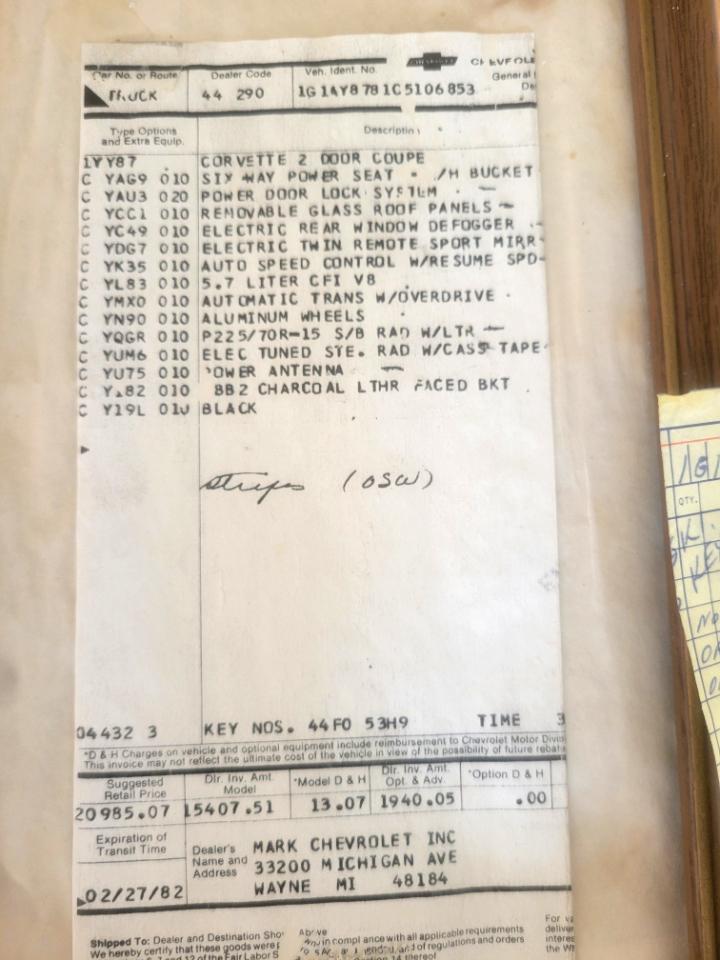 Car No. or Route Dealer Code Veh. Ident. No. CHEVROLET CHEVROLE
TRUCK 44 290 1G 1AY8 781C5106853 General
De
Type Options
and Extra Equip. Description
1YY87 CORVETTE 2 DOOR COUPE
C YAG9 010 SIX WAY POWER SEAT /H BUCKET
C YAU3 020 POWER DOOR LOCK SYSTEM
C YCC1 010 REMOVABLE GLASS ROOF PANELS
C YC49 010 ELECTRIC REAR WINDOW DEFOGGER
C YDG7 010 ELECTRIC TWIN REMOTE SPORT MIRR
C YK35 010 AUTO SPEED CONTROL W/RESUME SPD
C YL83 010 5.7 LITER CFI V8
C YMX0 010 AUTOMATIC TRANS W/OVERDRIVE
C YN90 010 ALUMINUM WHEELS
C YQGR 010 P225/70R-15 S/B RAD W/LTR
C YUM6 010 ELEC TUNED STE. RAD W/CASS TAPE
C YU75 010 POWER ANTENNA
C 010 BB2 CHARCOAL LTHR FACED BKT
C Y19L 010 BLACK
stripes (OSW)
04432 3 KEY NOS. 44F0 53H9 TIME 3
*D & H Charges on vehicle and optional equipment include reimbursement to Chevrolet Motor Divis
This invoice may not reflect the ultimate cost of the vehicle in view of the possibility of future rebat
Suggested Retail Price Dlr. Inv. Amt. Model *Model D & H Dlr. Inv. Amt. Opt. & Adv. *Option D & H
20985.07 15407.51 13.07 1940.05 .00
Expiration of
Transit Time
02/27/82
Dealer's Name and Address
MARK CHEVROLET INC
33200 MICHIGAN AVE
WAYNE MI 48184
Shipped To: Dealer and Destination Sho
Above
We hereby certify that these goods were
in compliance with all applicable requirements
of regulations and orders
12 of the Fair Labor S
14 thereof
For va
deliver
interes
the W
1G1
QTY.